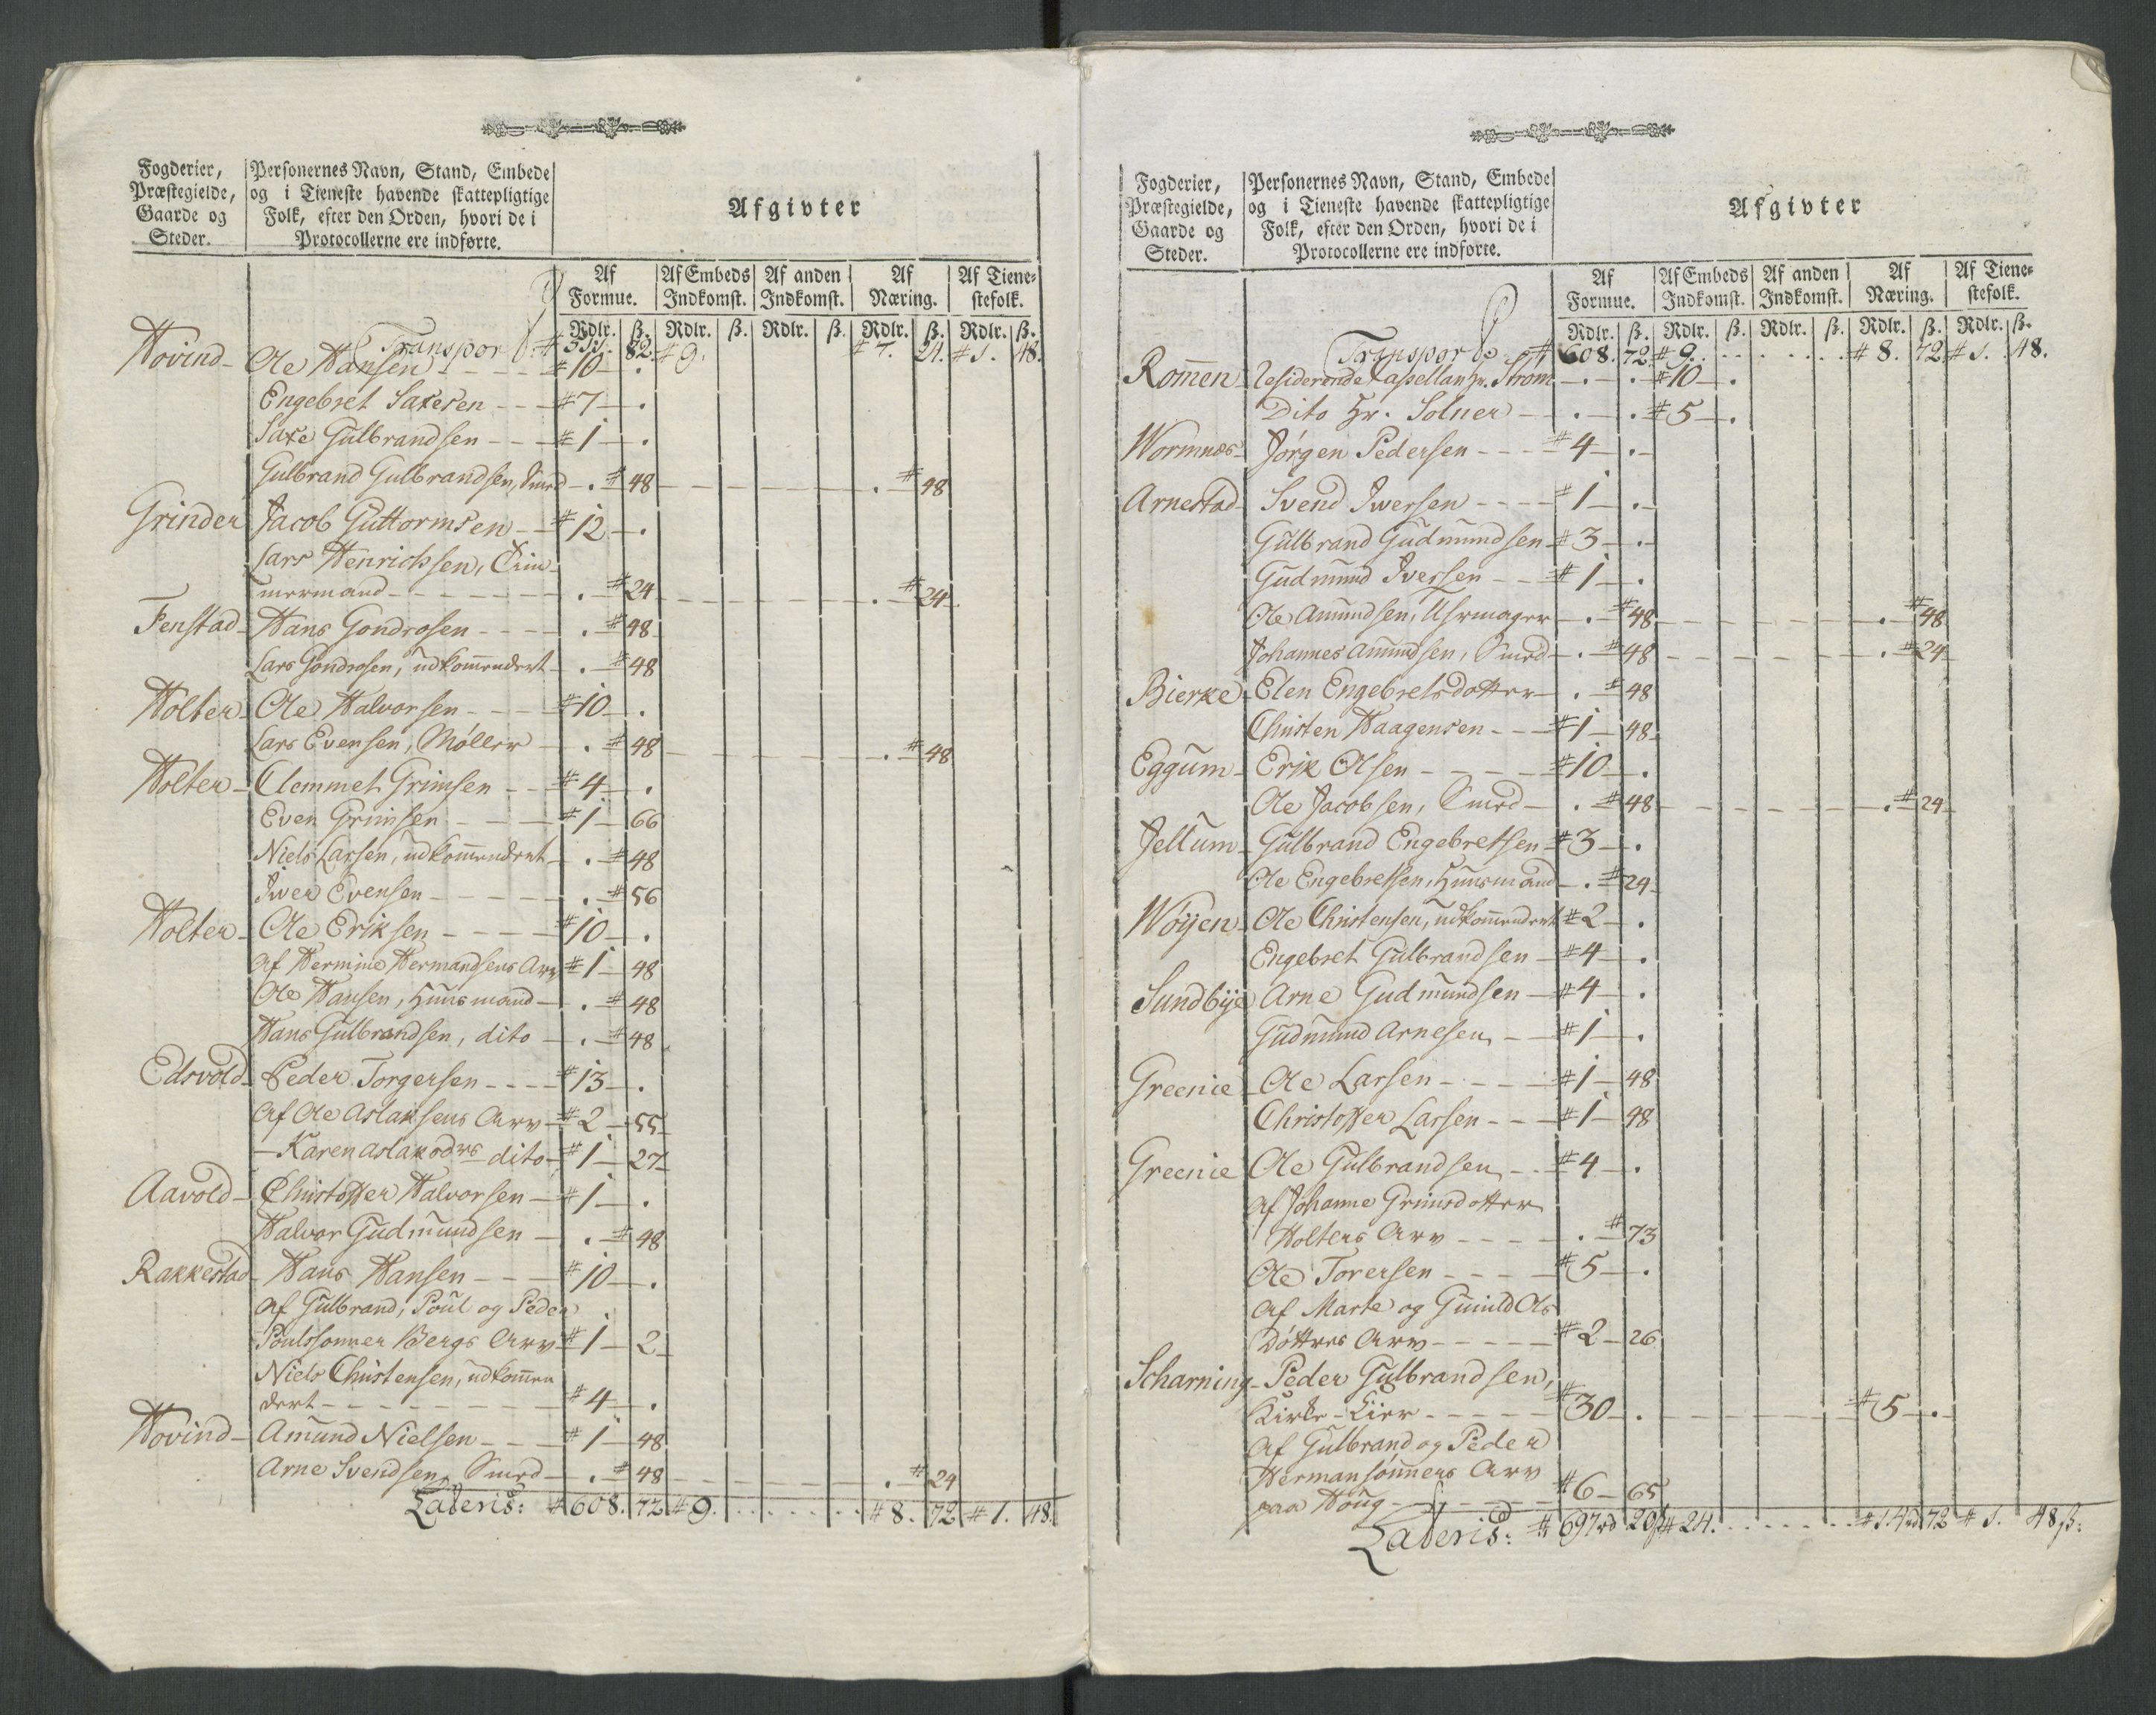 Fogderier, Præstegielde, Gaarde og Steder. | Personernes Navn, Stand, Embede og i Tieneste havende skattepligtige Folk, efter den Orden, hvori de i Protocollerne ere indførte. | Afgivter
Af Formue. | Af Embeds Indkomst. | Af anden Indkomst. | Af Næring. | Af Tienestefolk.
Rdlr. | ß. | Rdlr. | ß. | Rdlr. | ß. | Rdlr. | ß. | Rdlr. | ß.
Transport 82. # 9. # 7. 24. # 1. 48.
Hovind Ole Hansen # 10 .
Engebret Saxesen # 7 .
Saxe Gulbrandsen # 1 .
Gulbrand Gulbrandsen, Smed . # 48 . # 48
Grinder Jacob Guttormsen # 12 .
Lars Henrichsen, Tim-
mermand . # 24 . # 24
Fenstad Hans Gondrosen . # 48
Lars Gondrosen, udkom̅endert . # 48
Holter Ole Halvorsen # 10 .
Lars Evensen, Møller . # 48 . # 48
Holter Clemmet Grimsen # 4 .
Even Grimsen # 1 66
Niels Larsen, udkom̅endert . # 48
Iver Evensen . # 56
Holter Ole Eriksen # 10 .
Af Hermine Hermandsens Arv # 1 48
Ole Hansen, Huusmand . # 48
Hans Gulbrandsen, dito . # 48
Edsvold Peder Torgersen # 13 .
Af Ole Aslaksens Arv # 2 55
— Karen Aslaksdrs dito # 1 27
Aavold Christoffer Halvorsen # 1 .
Halvor Gudmundsen . # 48
Rakkestad Hans Hansen # 10 .
Af Gulbrand, Poul og Peder
Poulssønner Bergs Arv # 1 2
Niels Christensen, udkom̅en
dert # 4 .
Hovind Amund Nielsen # 1 48
Arne Svendsen, Smed . # 48 . # 24
Lateris: # 608. 72 # 9. # 8. 72 # 1. 48.
Fogderier, Præstegielde, Gaarde og Steder. | Personernes Navn, Stand, Embede og i Tieneste havende skattepligtige Folk, efter den Orden, hvori de i Protocollerne ere indførte. | Afgivter
Af Formue. | Af Embeds Indkomst. | Af anden Indkomst. | Af Næring. | Af Tienestefolk.
Rdlr. | ß. | Rdlr. | ß. | Rdlr. | ß. | Rdlr. | ß. | Rdlr. | ß.
Transport # 608. 72 # 9. # 8. 72 # 1. 48.
Rom̅en Residerende Capellan Hr. Strøm . . # 10 .
Dito Hr. Solner . . # 5 .
Wormnæs Jørgen Pedersen # 4 .
Arnestad Svend Iversen # 1 .
Gulbrand Gudmundsen # 3 .
Gudmund Iversen # 1 .
Ole Amundsen, Uhrmager . # 48 . # 48
Johannes Amundsen, Smed . # 48 . # 24
Bierke Elen Engebretsdotter . # 48
Christen Haagensen # 1 48
Eggum Erik Olsen # 10 .
Ole Jacobsen, Smed . # 48 . # 24
Jellum Gulbrand Engebretsen # 3 .
Ole Engebretsen, Huusmand . # 24
Wøyen Ole Christensen, udkom̅endert # 2 .
Engebret Gulbrandsen # 4 .
Sundbye Arne Gudmundsen # 4 .
Gudmund Arnesen # 1 .
Greenie Ole Larsen # 1 48
Christoffer Larsen # 1 48
Greenie Ole Gulbrandsen # 4 .
Af Johanne Grimsdotter
Holters Arv . # 73
Ole Torersen # 5 .
Af Marte og Gunild Ols
Døttres Arv # 2 26
Scharning Peder Gulbrandsen,
Kirke-Eier # 30 . # 5 .
Af Gulbrand og Peder
Hermansønners Arv
paa Houg # 6 65
Lateris: # 697 rd 20 ß # 24. # 14 rd 72 # 1. 48 ß: